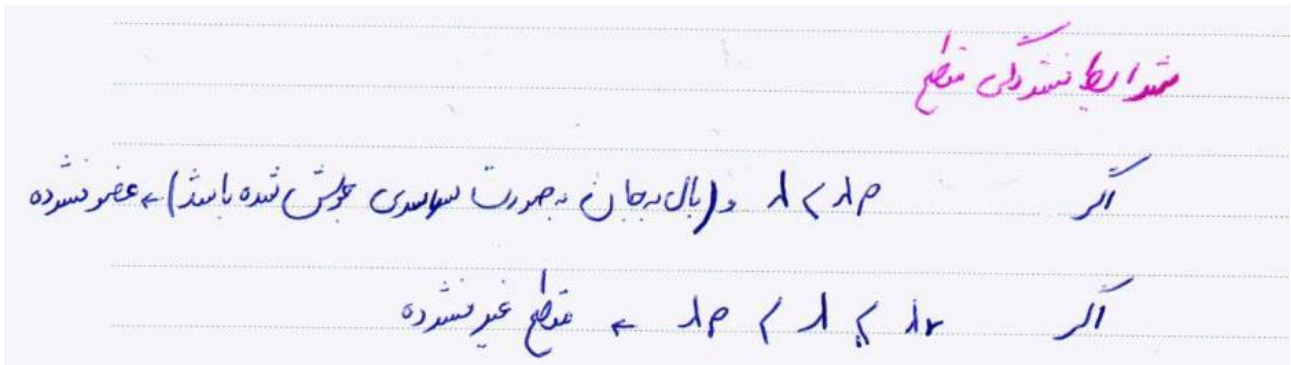 شرایط فشردگی مقطع
اگر λ < λp و (بال به جان به صورت سراسری جوش شده باشد) ← عضو فشرده
اگر λp < λ ≤ λr ← مقطع غیر فشرده